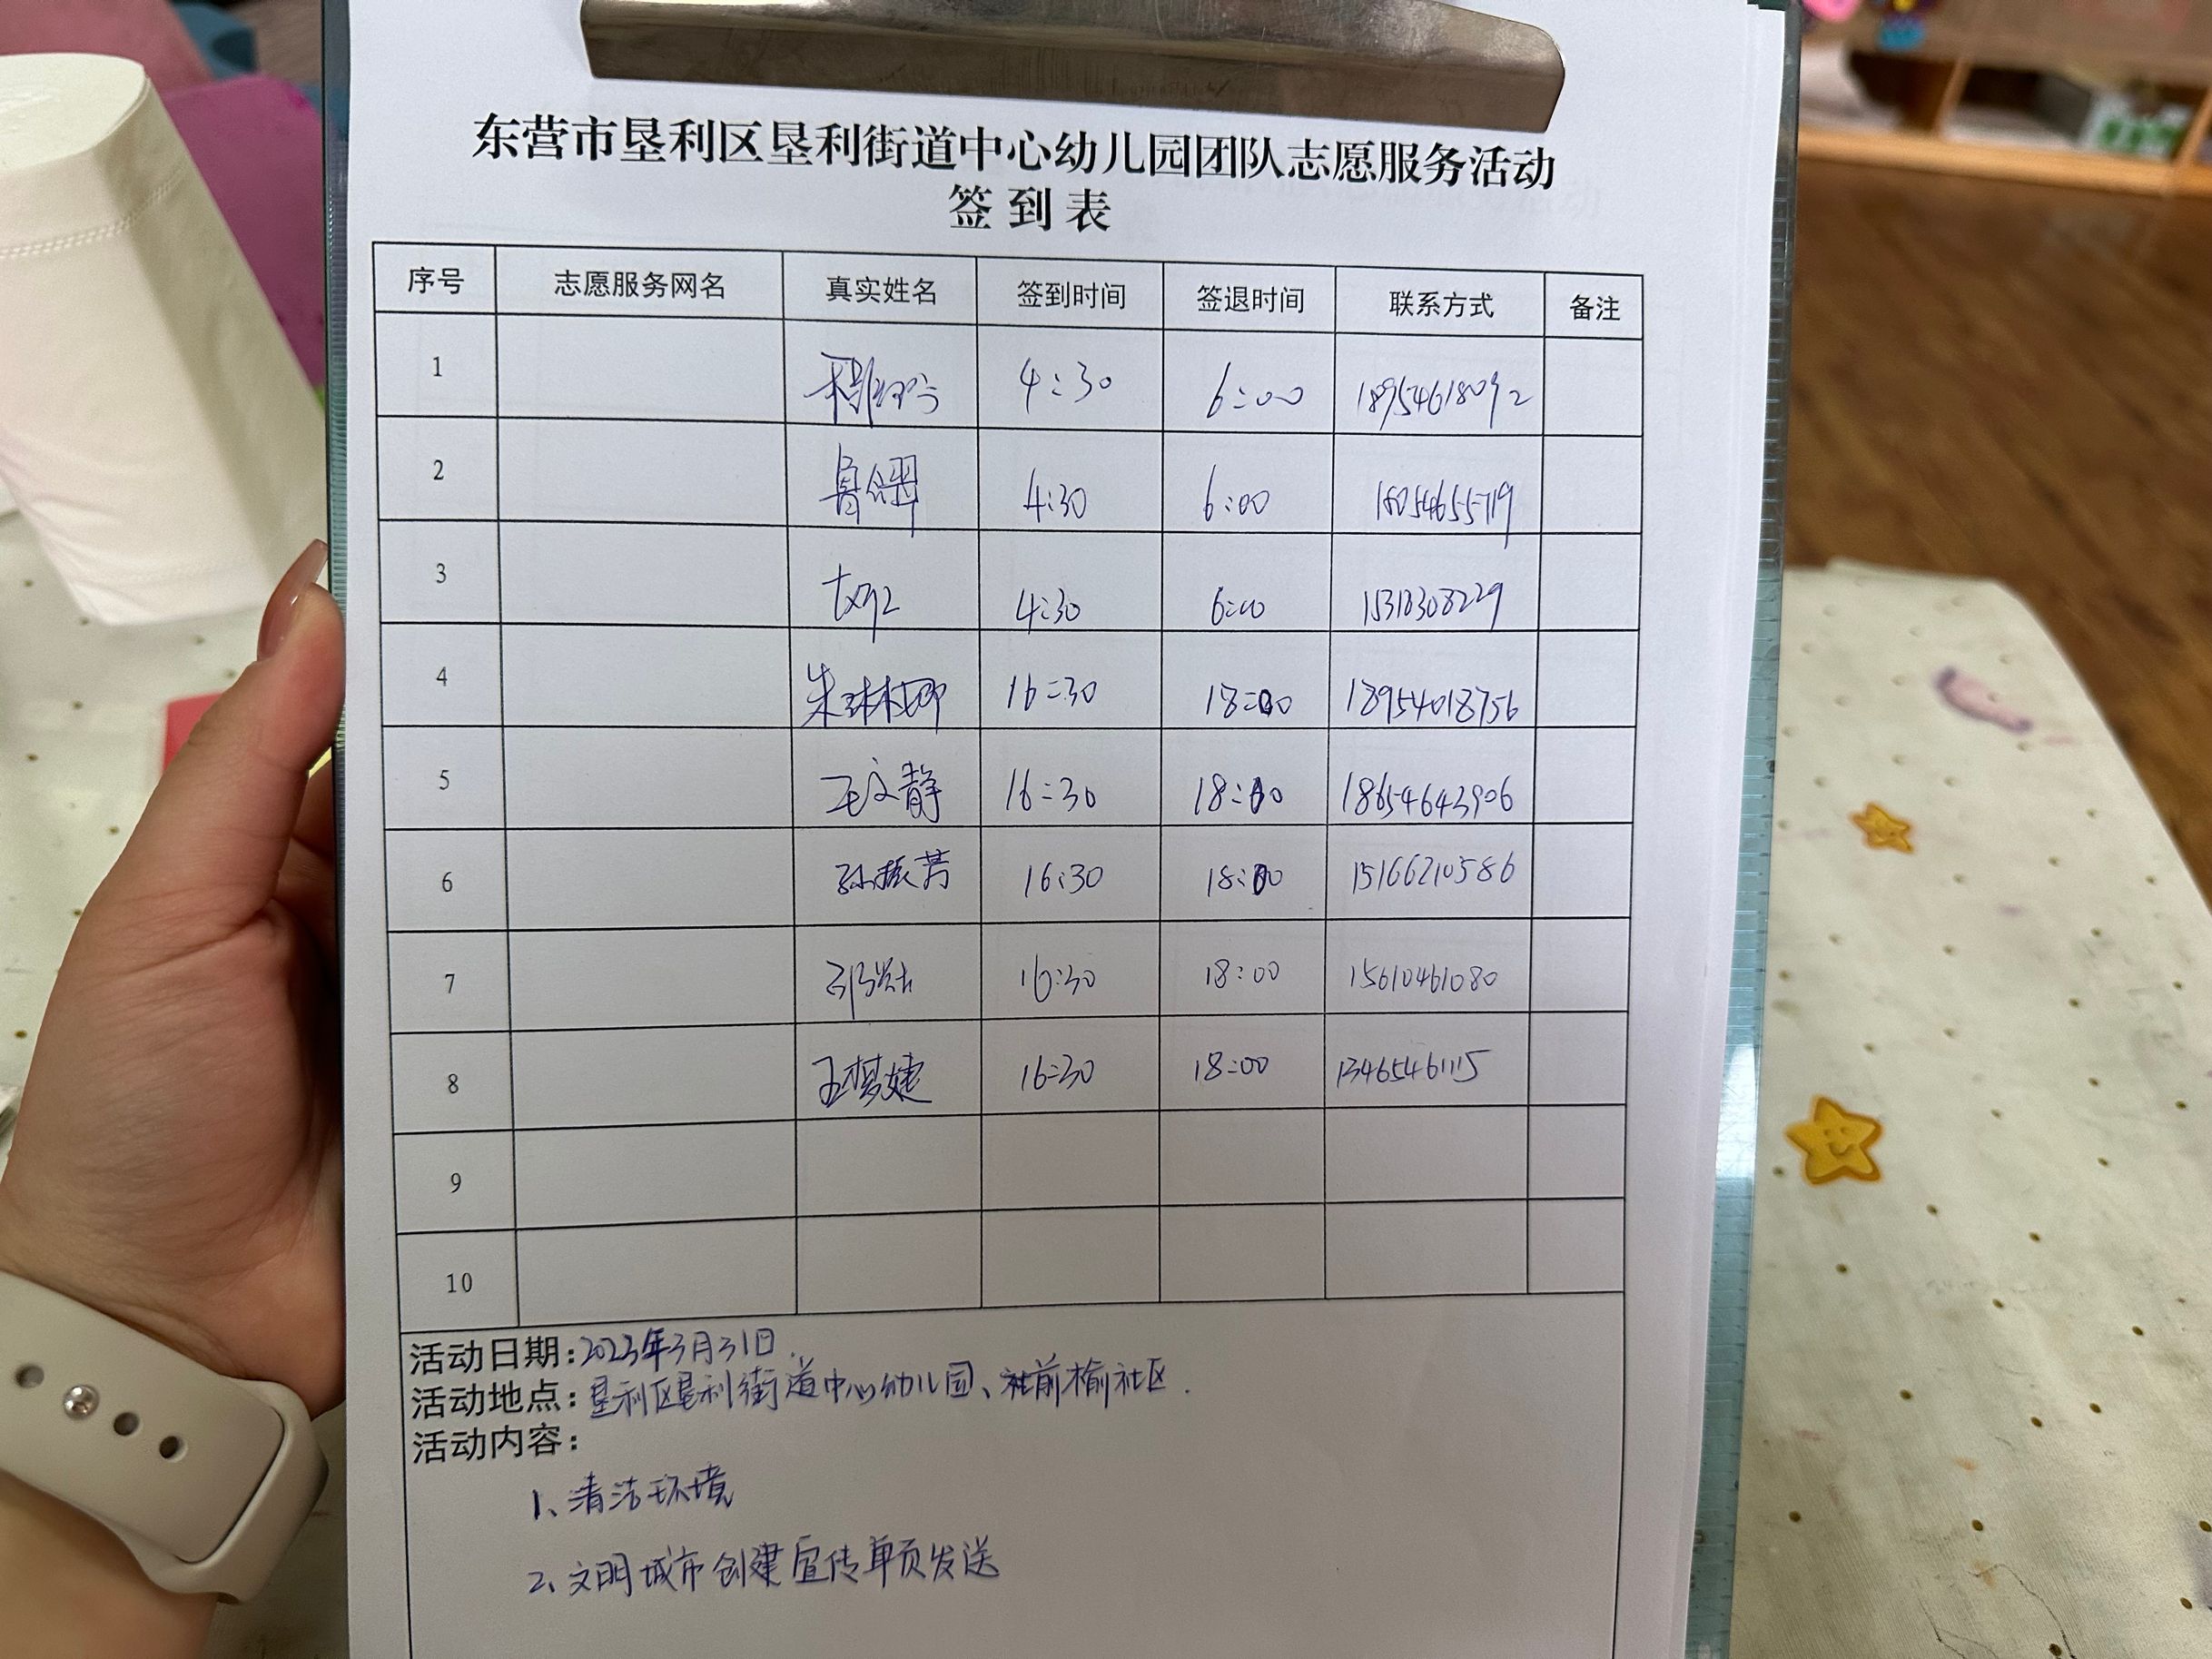 东营市垦利区垦利街道中心幼儿园团队志愿服务活动
签到表
序号 志愿服务网名 真实姓名 签到时间 签退时间 联系方式 备注
1 4:30 6:00 18954618092
2 4:30 6:00 18054655719
3 4:30 6:00 15318308229
4 朱琳娜 16:30 18:00 18954018756
5 王文静 16:30 18:00 18654643906
6 孙振芳 16:30 18:00 15166210586
7 16:30 18:00 15610461080
8 王梦婕 16:30 18:00 13465461115
9
10
活动日期:2023年3月31日.
活动地点:垦利区垦利街道中心幼儿园、前榆社区.
活动内容:
1、清洁环境
2、文明城市创建宣传单页发送